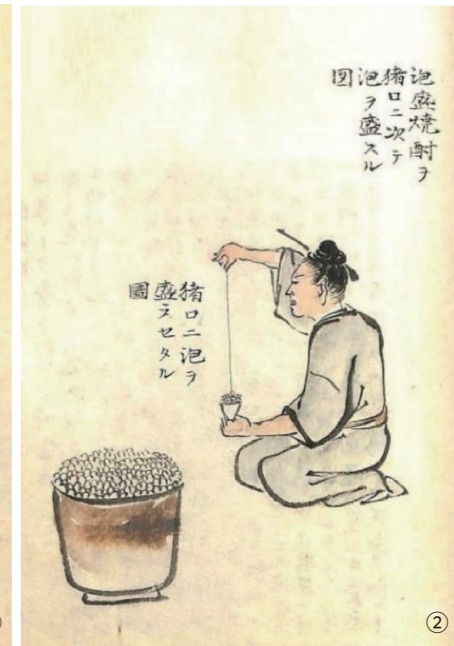 泡盛焼酎ヲ
猪口ニ次テ
泡ヲ盛スル
図
猪口ニ泡ヲ
盛ラセタル
圖
②